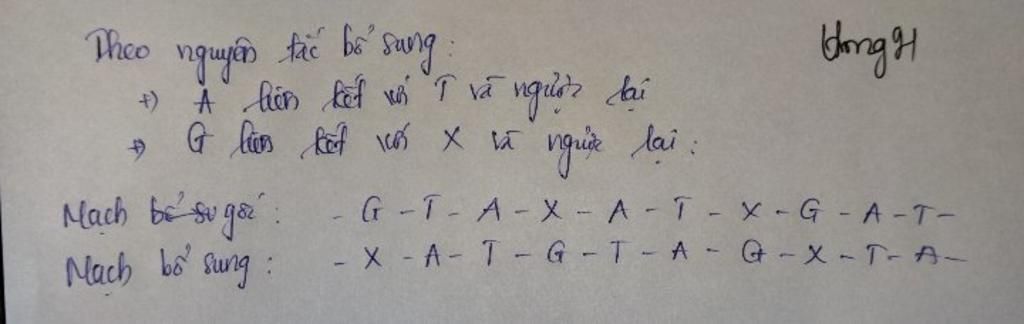 Theo nguyên tắc bổ sung:
+) A liên kết với T và ngược lại
+) G liên kết với X và ngược lại:
Mạch gốc: - G - T - A - X - A - T - X - G - A - T -
Mạch bổ sung: - X - A - T - G - T - A - G - X - T - A -